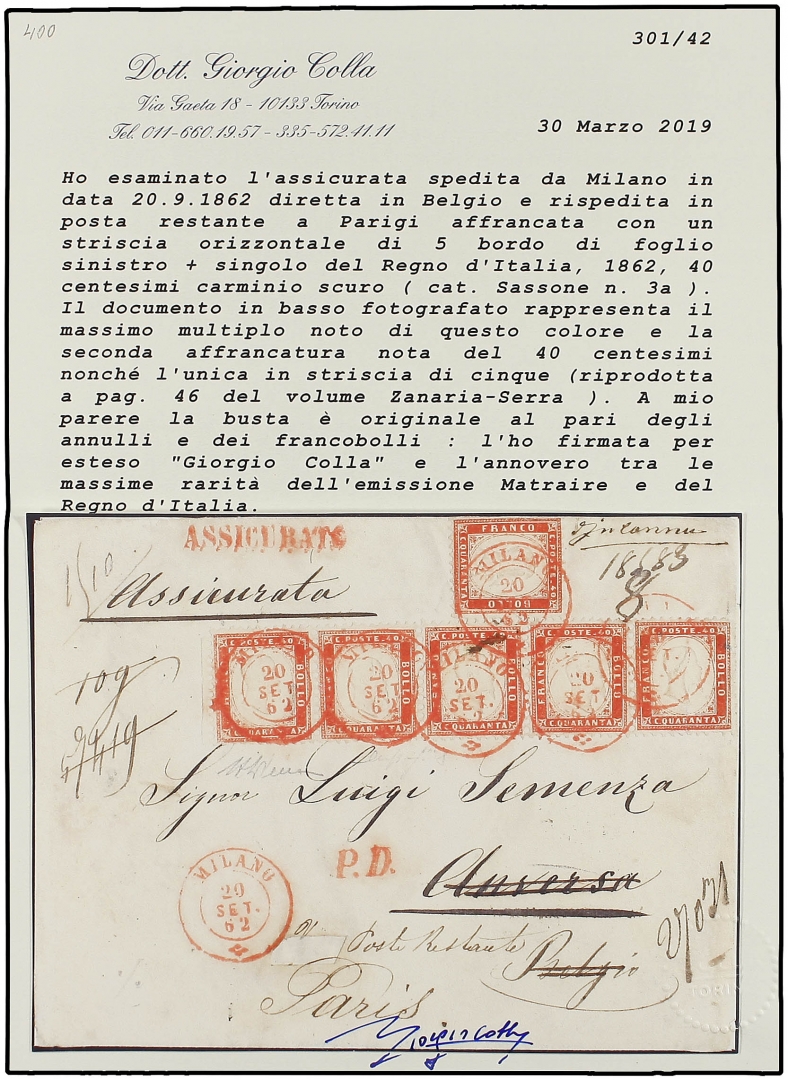 400
301/42
Dott. Giorgio Colla
Via Gaeta 18 - 10133 Torino
Tel. 011-660.19.57 - 335-572.41.11
30 Marzo 2019
Ho esaminato l'assicurata spedita da Milano in
data 20.9.1862 diretta in Belgio e rispedita in
posta restante a Parigi affrancata con un
striscia orizzontale di 5 bordo di foglio
sinistro + singolo del Regno d'Italia, 1862, 40
centesimi carminio scuro ( cat. Sassone n. 3a ).
Il documento in basso fotografato rappresenta il
massimo multiplo noto di questo colore e la
seconda affrancatura nota del 40 centesimi
nonché l'unica in striscia di cinque (riprodotta
a pag. 46 del volume Zanaria-Serra ). A mio
parere la busta è originale al pari degli
annulli e dei francobolli : l'ho firmata per
esteso "Giorgio Colla" e l'annovero tra le
massime rarità dell'emissione Matraire e del
Regno d'Italia.
ASSICURATO
FRANCO
C. QUARANTA
C. POSTE. 40
BOLLO
MILANO
20
Assicurata
109
C. POSTE. 40
FRANCO
BOLLO
C. QUARANTA
20
SET
62
C. POSTE. 40
FRANCO
BOLLO
C. QUARANTA
20
SET
62
C. POSTE. 40
FRANCO
BOLLO
C. QUARANTA
MILANO
20
SET.
62
C. POSTE. 40
FRANCO
BOLLO
C. QUARANTA
20
SET
C. POSTE. 40
FRANCO
BOLLO
C. QUARANTA
Signor Luigi Semenza
P.D.
Anversa
MILANO
20
SET.
62
Poste Restante
Belgio
Paris
TORINO